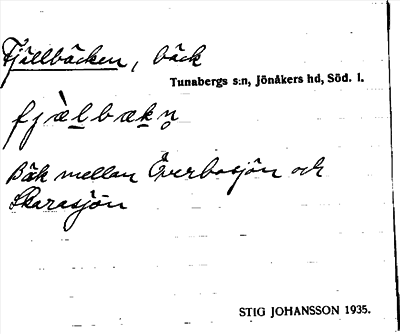 Fjällbäcken, bäck
Tunabergs s:n, Jönåkers hd, Söd. l.
fjὰlbækn̥
Bäk mellan Överbosjön och
Skarasjön
STIG JOHANSSON 1935.